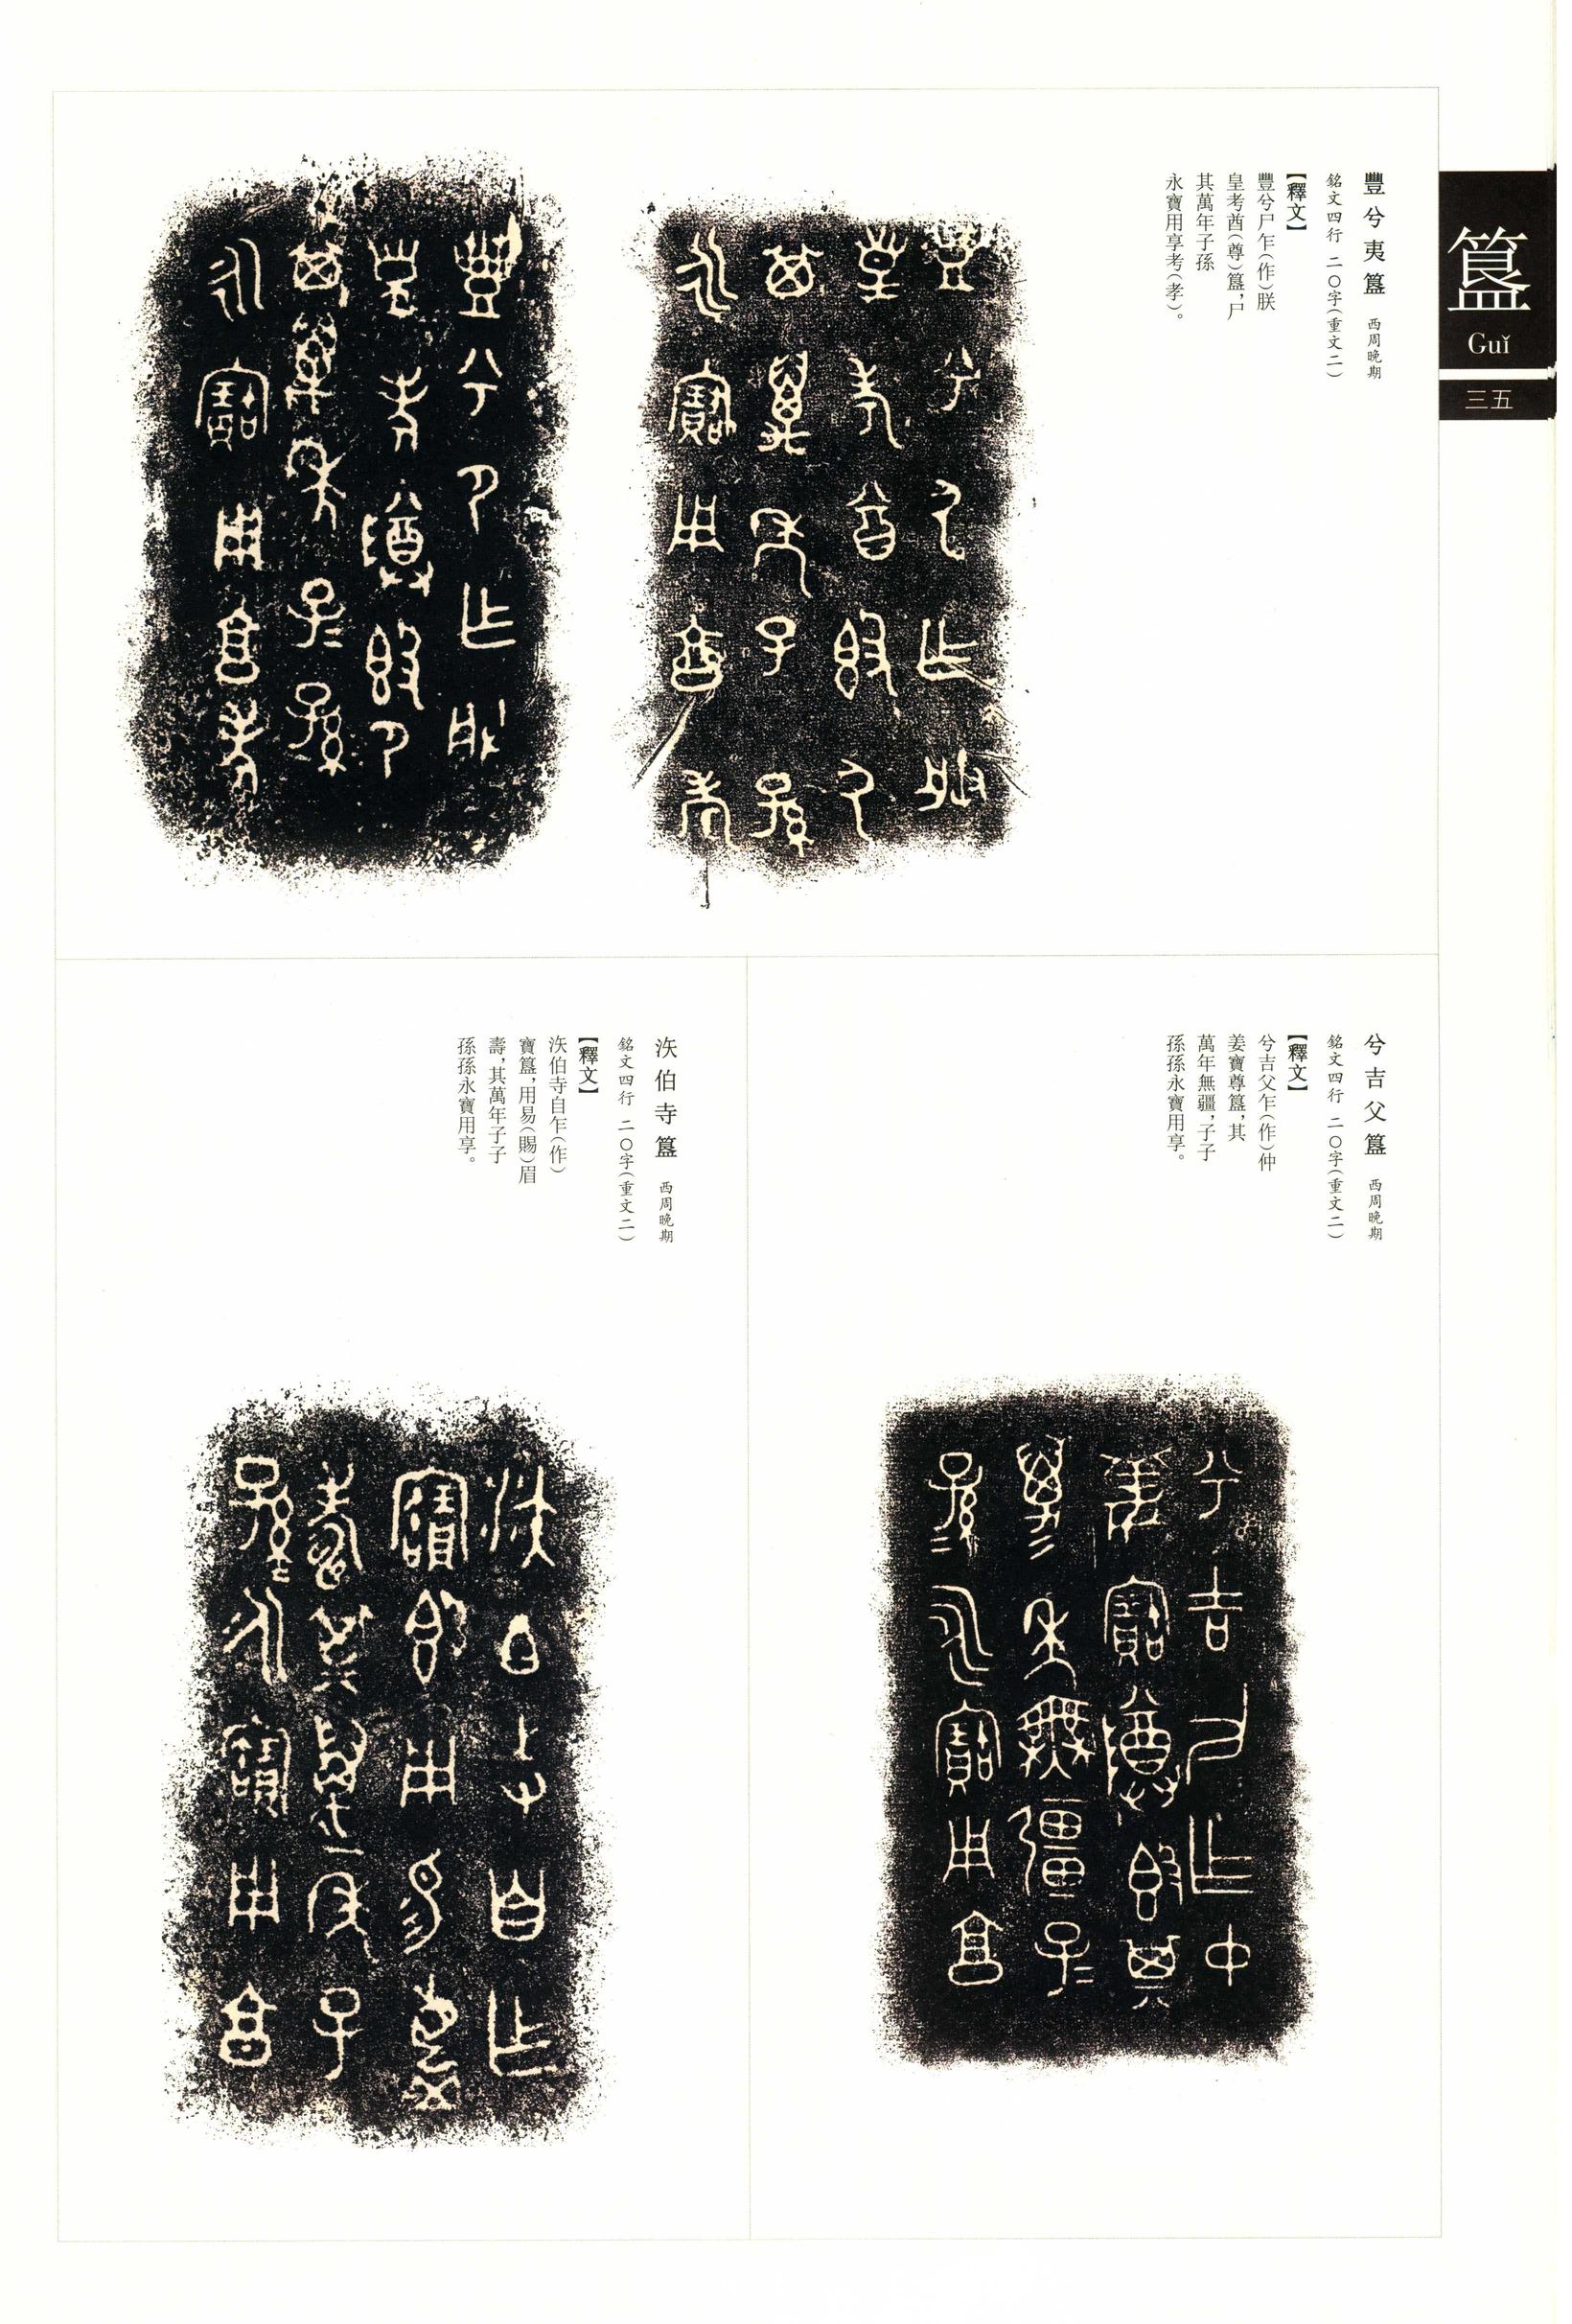 簋
Guǐ
三五
豐兮夷簋 西周晚期
銘文四行 二〇字(重文二)
【釋文】
豐兮尸乍(作)朕
皇考酋(尊)簋,尸
其萬年子孫
永寶用享考(孝)。
兮吉父簋 西周晚期
銘文四行 二〇字(重文二)
【釋文】
兮吉父乍(作)仲
姜寶尊簋,其
萬年無疆,子子
孫孫永寶用享。
㳄伯寺簋 西周晚期
銘文四行 二〇字(重文二)
【釋文】
㳄伯寺自乍(作)
寶簋,用易(賜)眉
壽,其萬年子子
孫孫永寶用享。